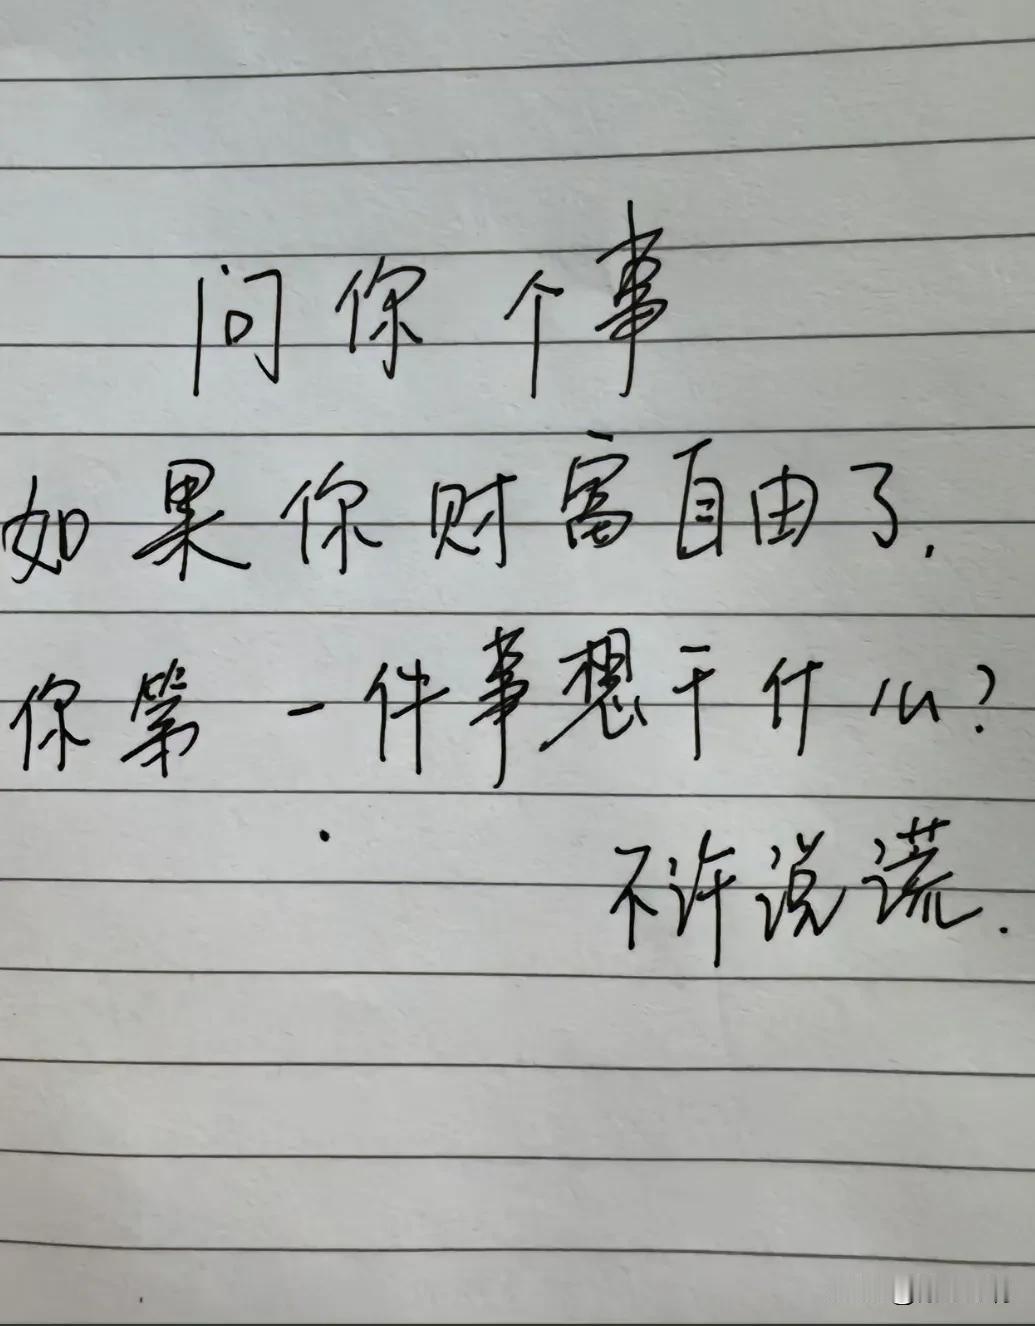 问你个事
如果你财富自由了.
你第一件事想干什么?
不许说谎.